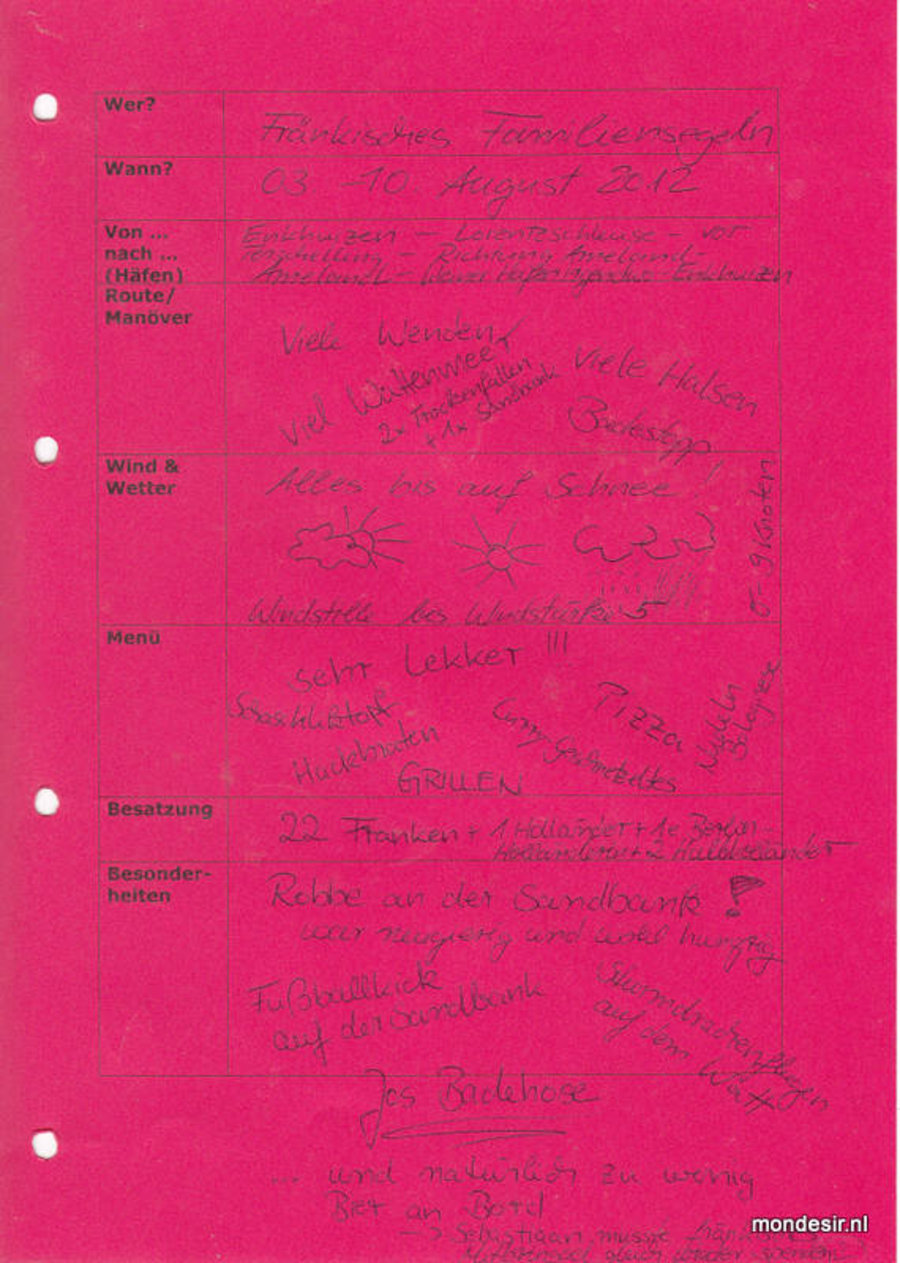 Wer?
Fränkisches Familiensegeln
Wann?
03 - 10. August 2012
Von ...
nach ...
(Häfen)
Enkhuizen – Lorentzschleuse – vor
Terschelling – Richtung Ameland –
Ameland – Enkhuizen
Route/
Manöver
Viele Wenden
viel Wattenmeer
2x Trockenfallen
+ 1x Sandbank
Viele Halsen
Badestopp
Wind &
Wetter
Alles bis auf Schnee!
0 - 9 Knoten
Windstille bis Windstärke 5
Menü
sehr Lekker !!!
Schaschlißtopf
Hackbraten
GRILLEN
Curry Geschnetzeltes
Pizza
Nudeln
Bolognese
Besatzung
22 Franken + 1 Holländer + 1e Berlin-
Holländerin + 2 Halbholländer
Besonder-
heiten
Robbe an der Sandbank !
war neugierig und wohl hungrig
Fußballkick
auf der Sandbank
auf dem Watt
Jos Badehose
... und natürlich zu wenig
Bier an Bord
-> Sebastiaan musste
mondesir.nl